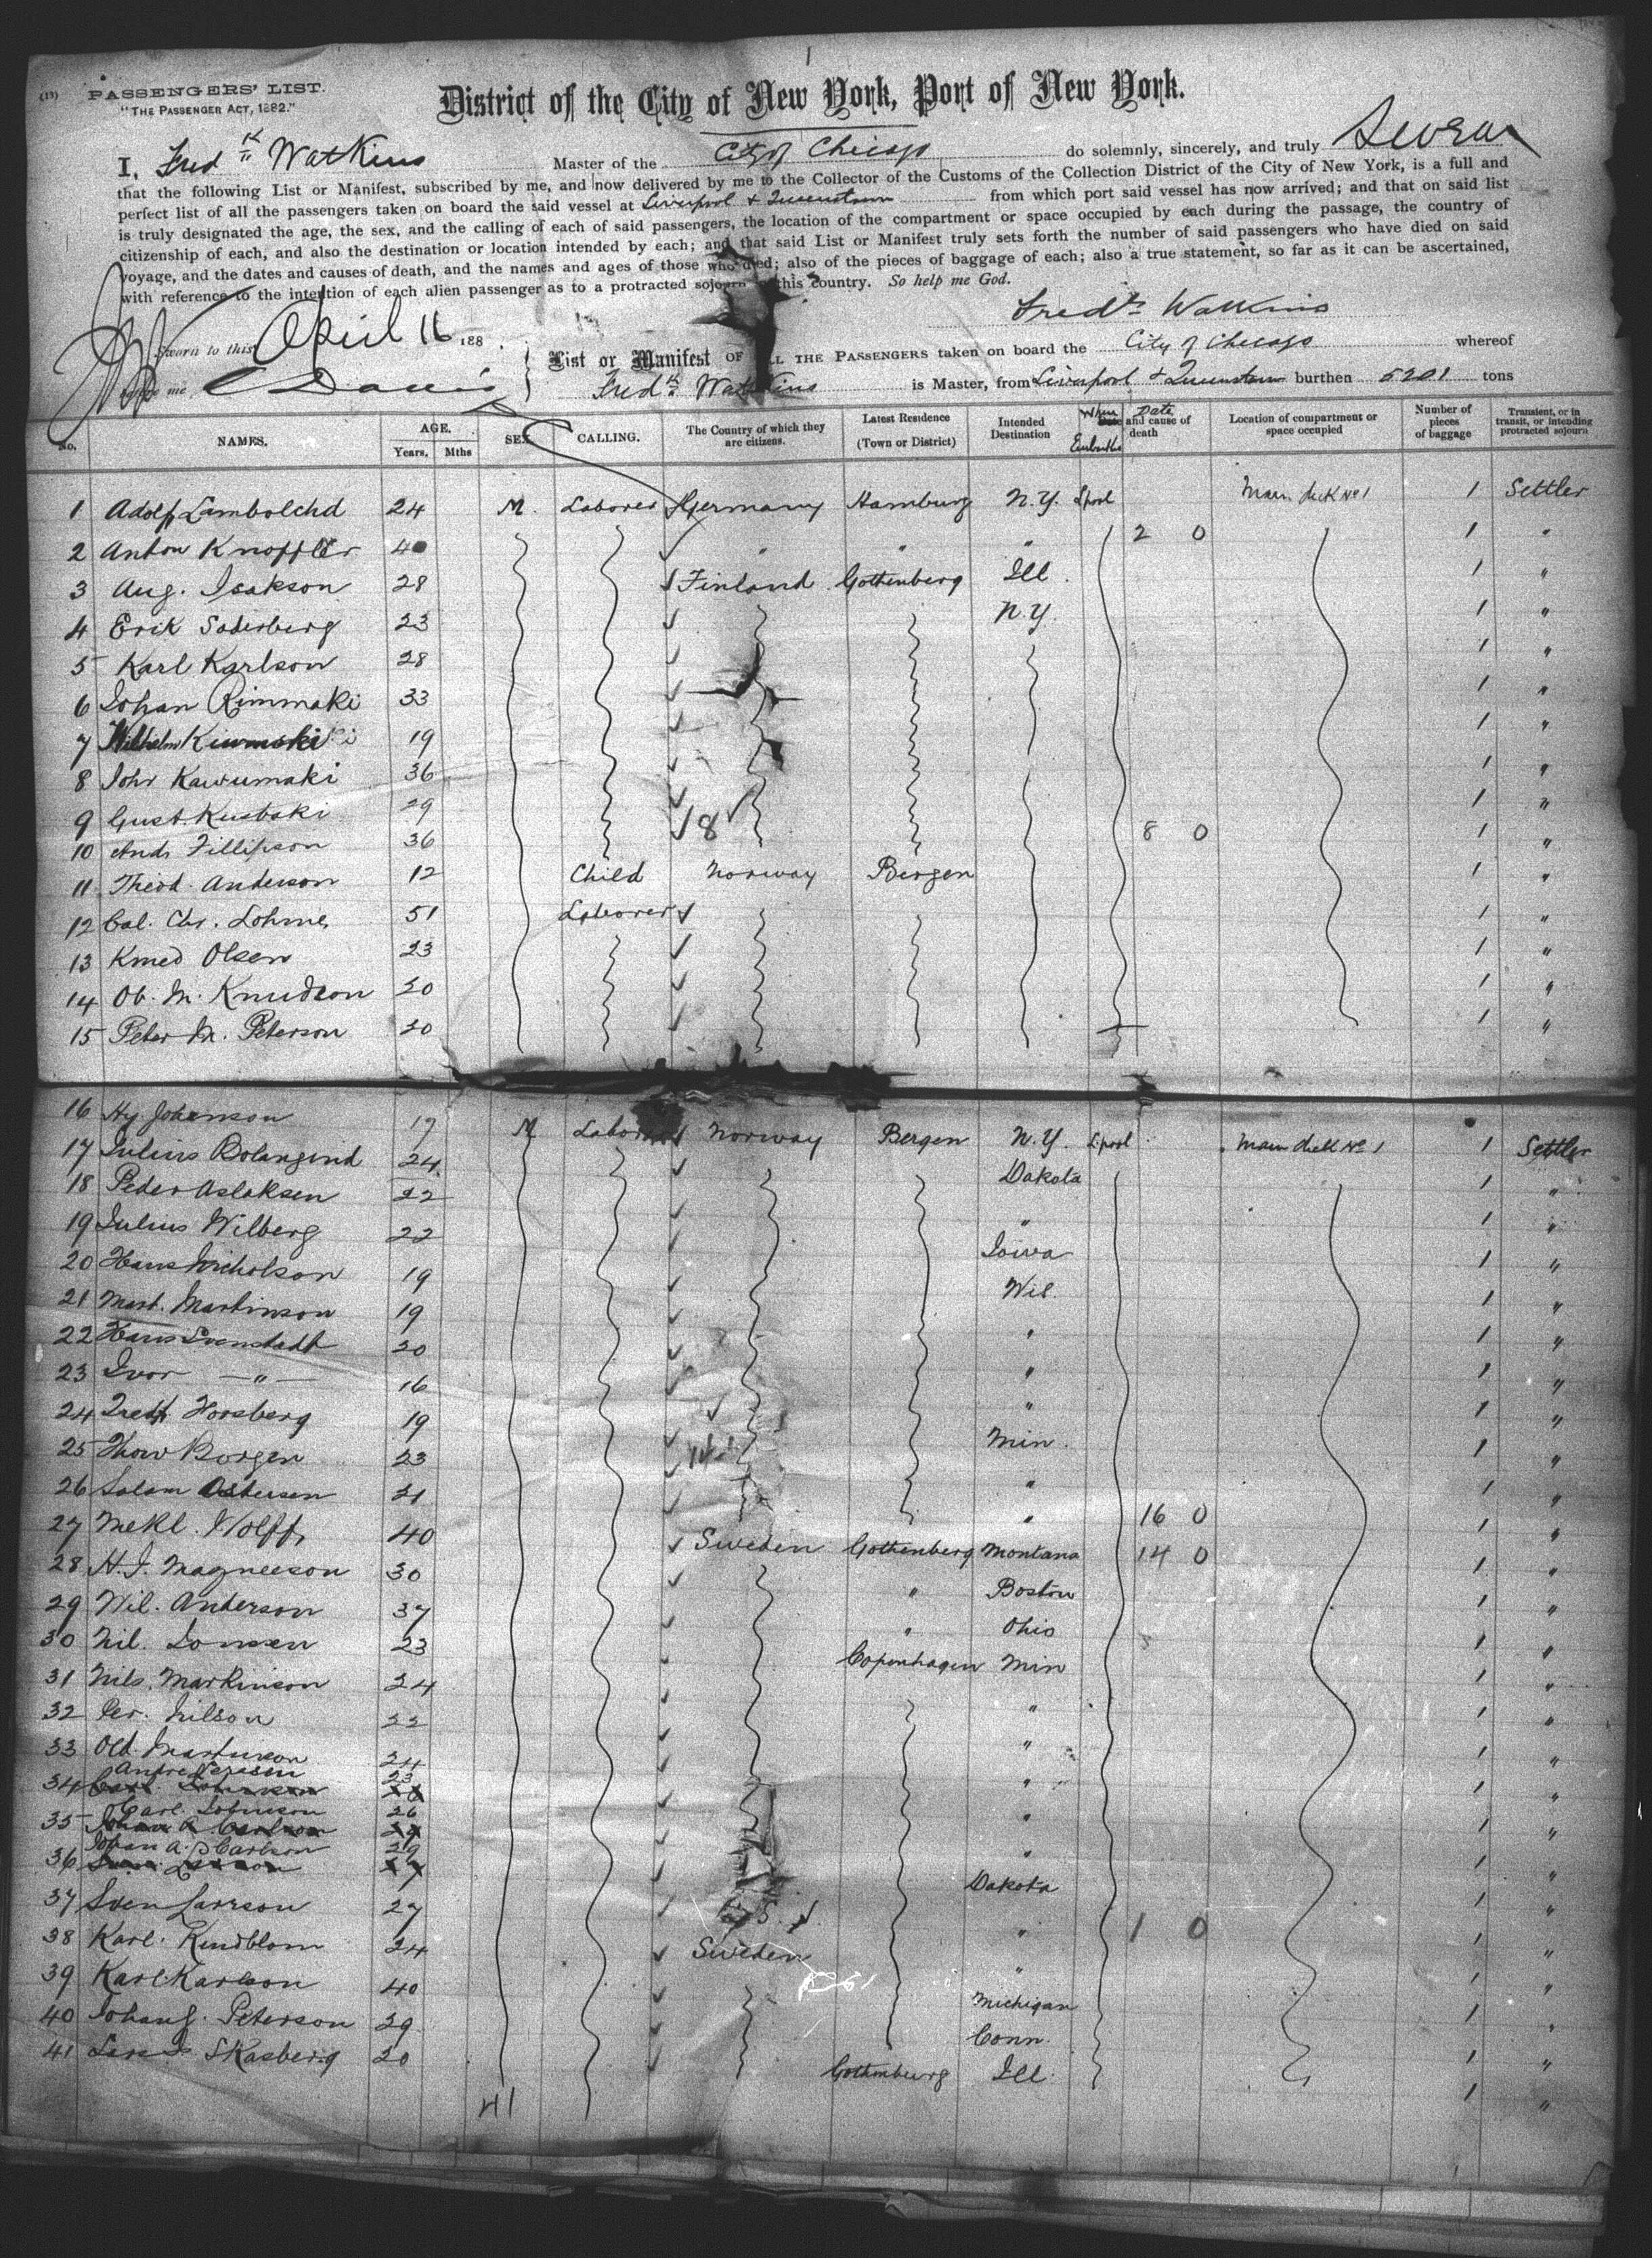 1
(13)
PASSENGERS' LIST.
"THE PASSENGER ACT, 1882."
District of the City of New York, Port of New York.
I, Fredk Watkins Master of the City of Chicago do solemnly, sincerely, and truly Swear
that the following List or Manifest, subscribed by me, and now delivered by me to the Collector of the Customs of the Collection District of the City of New York, is a full and
perfect list of all the passengers taken on board the said vessel at Liverpool & Queenstown from which port said vessel has now arrived; and that on said list
is truly designated the age, the sex, and the calling of each of said passengers, the location of the compartment or space occupied by each during the passage, the country of
citizenship of each, and also the destination or location intended by each; and that said List or Manifest truly sets forth the number of said passengers who have died on said
voyage, and the dates and causes of death, and the names and ages of those who died; also of the pieces of baggage of each; also a true statement, so far as it can be ascertained,
with reference to the intention of each alien passenger as to a protracted sojourn this country. So help me God.
Fredk Watkins
Sworn to this April 16 188
List or Manifest OF ALL THE PASSENGERS taken on board the City of Chicago whereof
before me C Davis
Fredk Watkins is Master, from Liverpool & Queenstown burthen 5201 tons
No. NAMES. AGE. Years. Mths SEX. CALLING. The Country of which they are citizens. Latest Residence (Town or District) Intended Destination Where Embarked Date and cause of death Location of compartment or space occupied Number of pieces of baggage Transient, or in transit, or intending protracted sojourn
1 Adolf Lambolchd 24 M. Laborer Germany Hamburg N.Y. Lpool Main deck No 1 1 Settler
2 Anton Knoppler 40 " " " 2 0 1 "
3 Aug. Isakson 28 Finland Gothenberg Ill. 1 "
4 Erik Soderberg 23 N.Y. 1 "
5 Karl Karlson 28 1 "
6 Johan Rimmaki 33 1 "
7 Wilhelm 19 1 "
8 Joh Kawumaki 36 1 "
9 Gust. Kustaki 29 8 1 "
10 And. Fillipson 36 8 0 1 "
11 Theod. Anderson 12 Child Norway Bergen 1 "
12 Cal. Chr. Lohme 51 Laborer 1 "
13 Kmed Olsen 23 1 "
14 Ob. M. Knudson 20 1 "
15 Peter M. Peterson 20 1 "
16 Hy. Johanson 17 M Laborer Norway Bergen N.Y. Lpool Main deck No 1 1 Settler
17 Julius Bolangind 24 Dakota 1 "
18 Peder Aslaksen 22 " 1 "
19 Julius Wilberg 22 Iowa 1 "
20 Hans Nicholson 19 Wil. 1 "
21 Mart. Martinson 19 " 1 "
22 Hans Svenstadt 20 " 1 "
23 Ivor — " — 16 " 1 "
24 Horsberg 19 Min. 1 "
25 Thow Borgen 23 14 " 1 "
26 Salam Ostersen 21 " 16 0 1 "
27 Mekl. Wolff 40 Sweden Gothenberg Montana 14 0 1 "
28 H. J. Magneeson 30 " Boston 1 "
29 Wil. Anderson 37 " Ohio 1 "
30 Nil. Jonsen 23 Copenhagen Min 1 "
31 Nils. Markinson 24 " 1 "
32 Per. Nilson 22 " 1 "
33 Old. Martinson 24 " 1 "
34 Andre Persson 23 " 1 "
35 Carl. Johnson 26 " 1 "
36 Johan A. Carlson 29 Dakota 1 "
37 Sven Larson 27 " 1 0 1 "
38 Karl. Kindblom 24 Sweden " 1 "
39 Karl. Karlson 40 Michigan 1 "
40 Johan J. Peterson 29 Conn. 1 "
41 Skasberg 20 Gothenburg Ill. 1 "
41